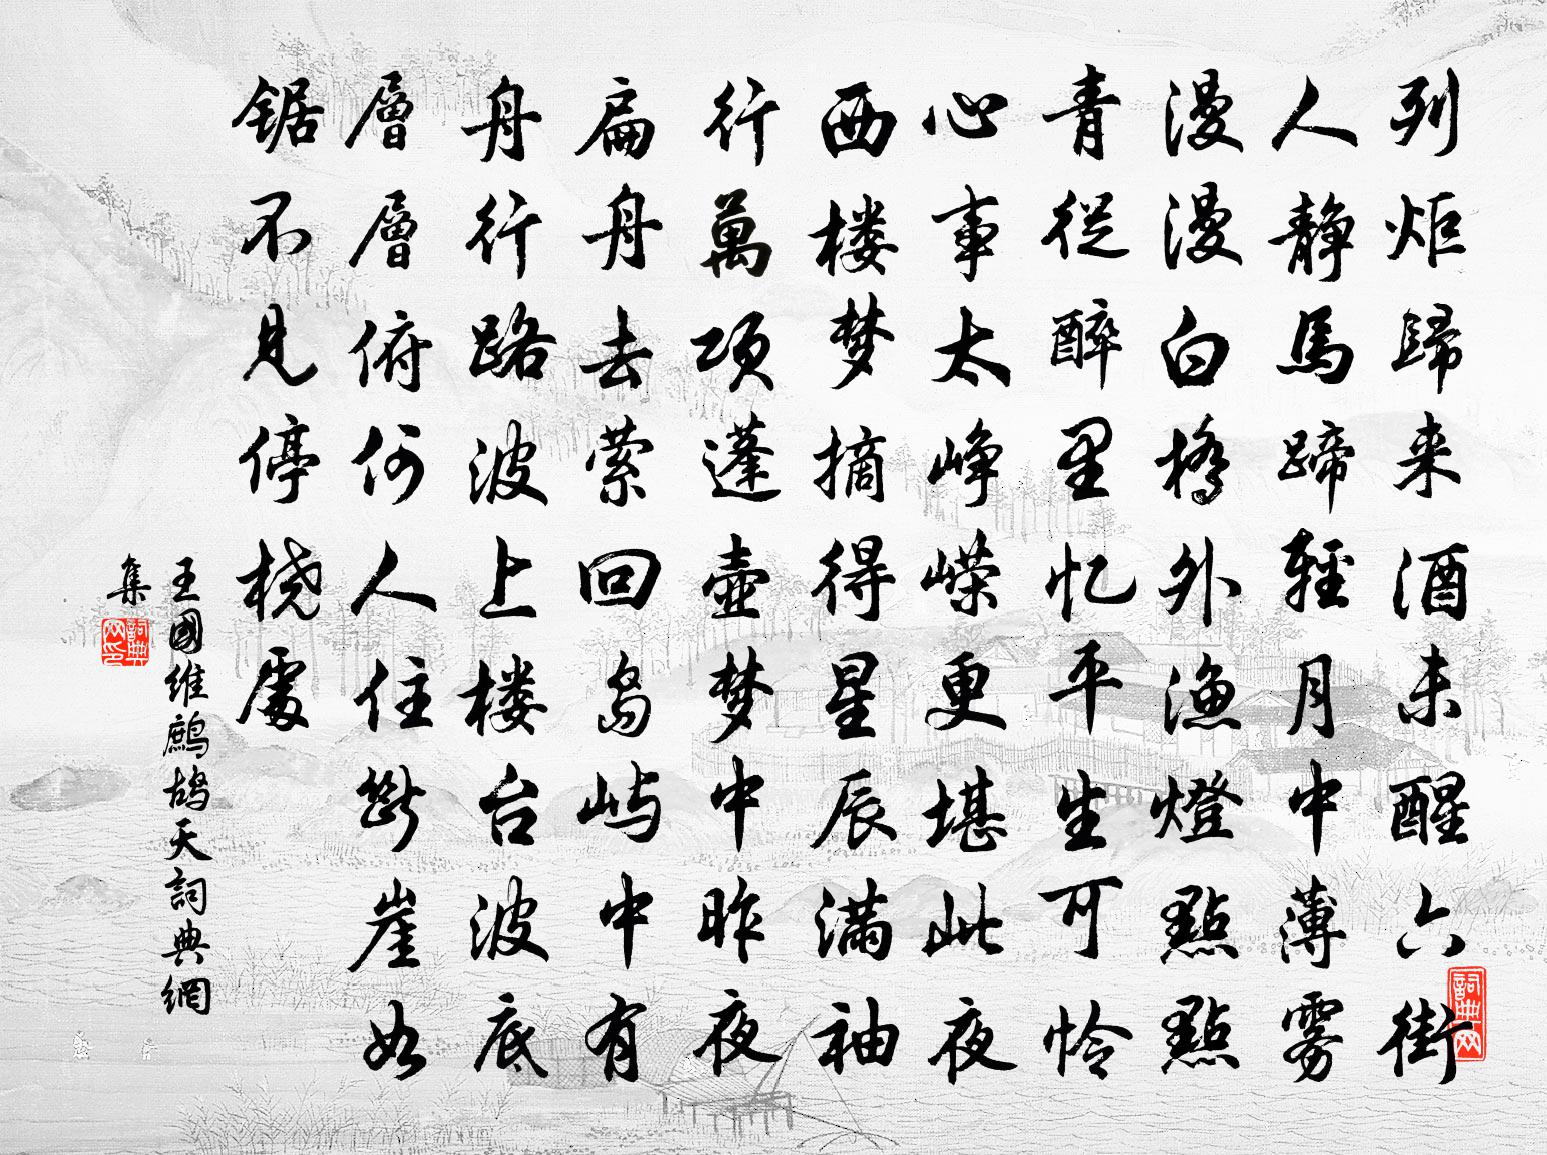 列炬歸来酒未醒六街
人静馬蹄輕月中薄雾
漫漫白橋外渔燈點點
青從醉里忆平生可怜
心事太峥嵘更堪此夜
西楼梦摘得星辰满袖
行萬项蓬壶梦中昨夜
扁舟去萦回岛屿中有
舟行路波上楼台波底
層層俯何人住斷崖如
锯不见停桡處
王國维鹧鸪天詞典網
集
詞典网
詞典网印